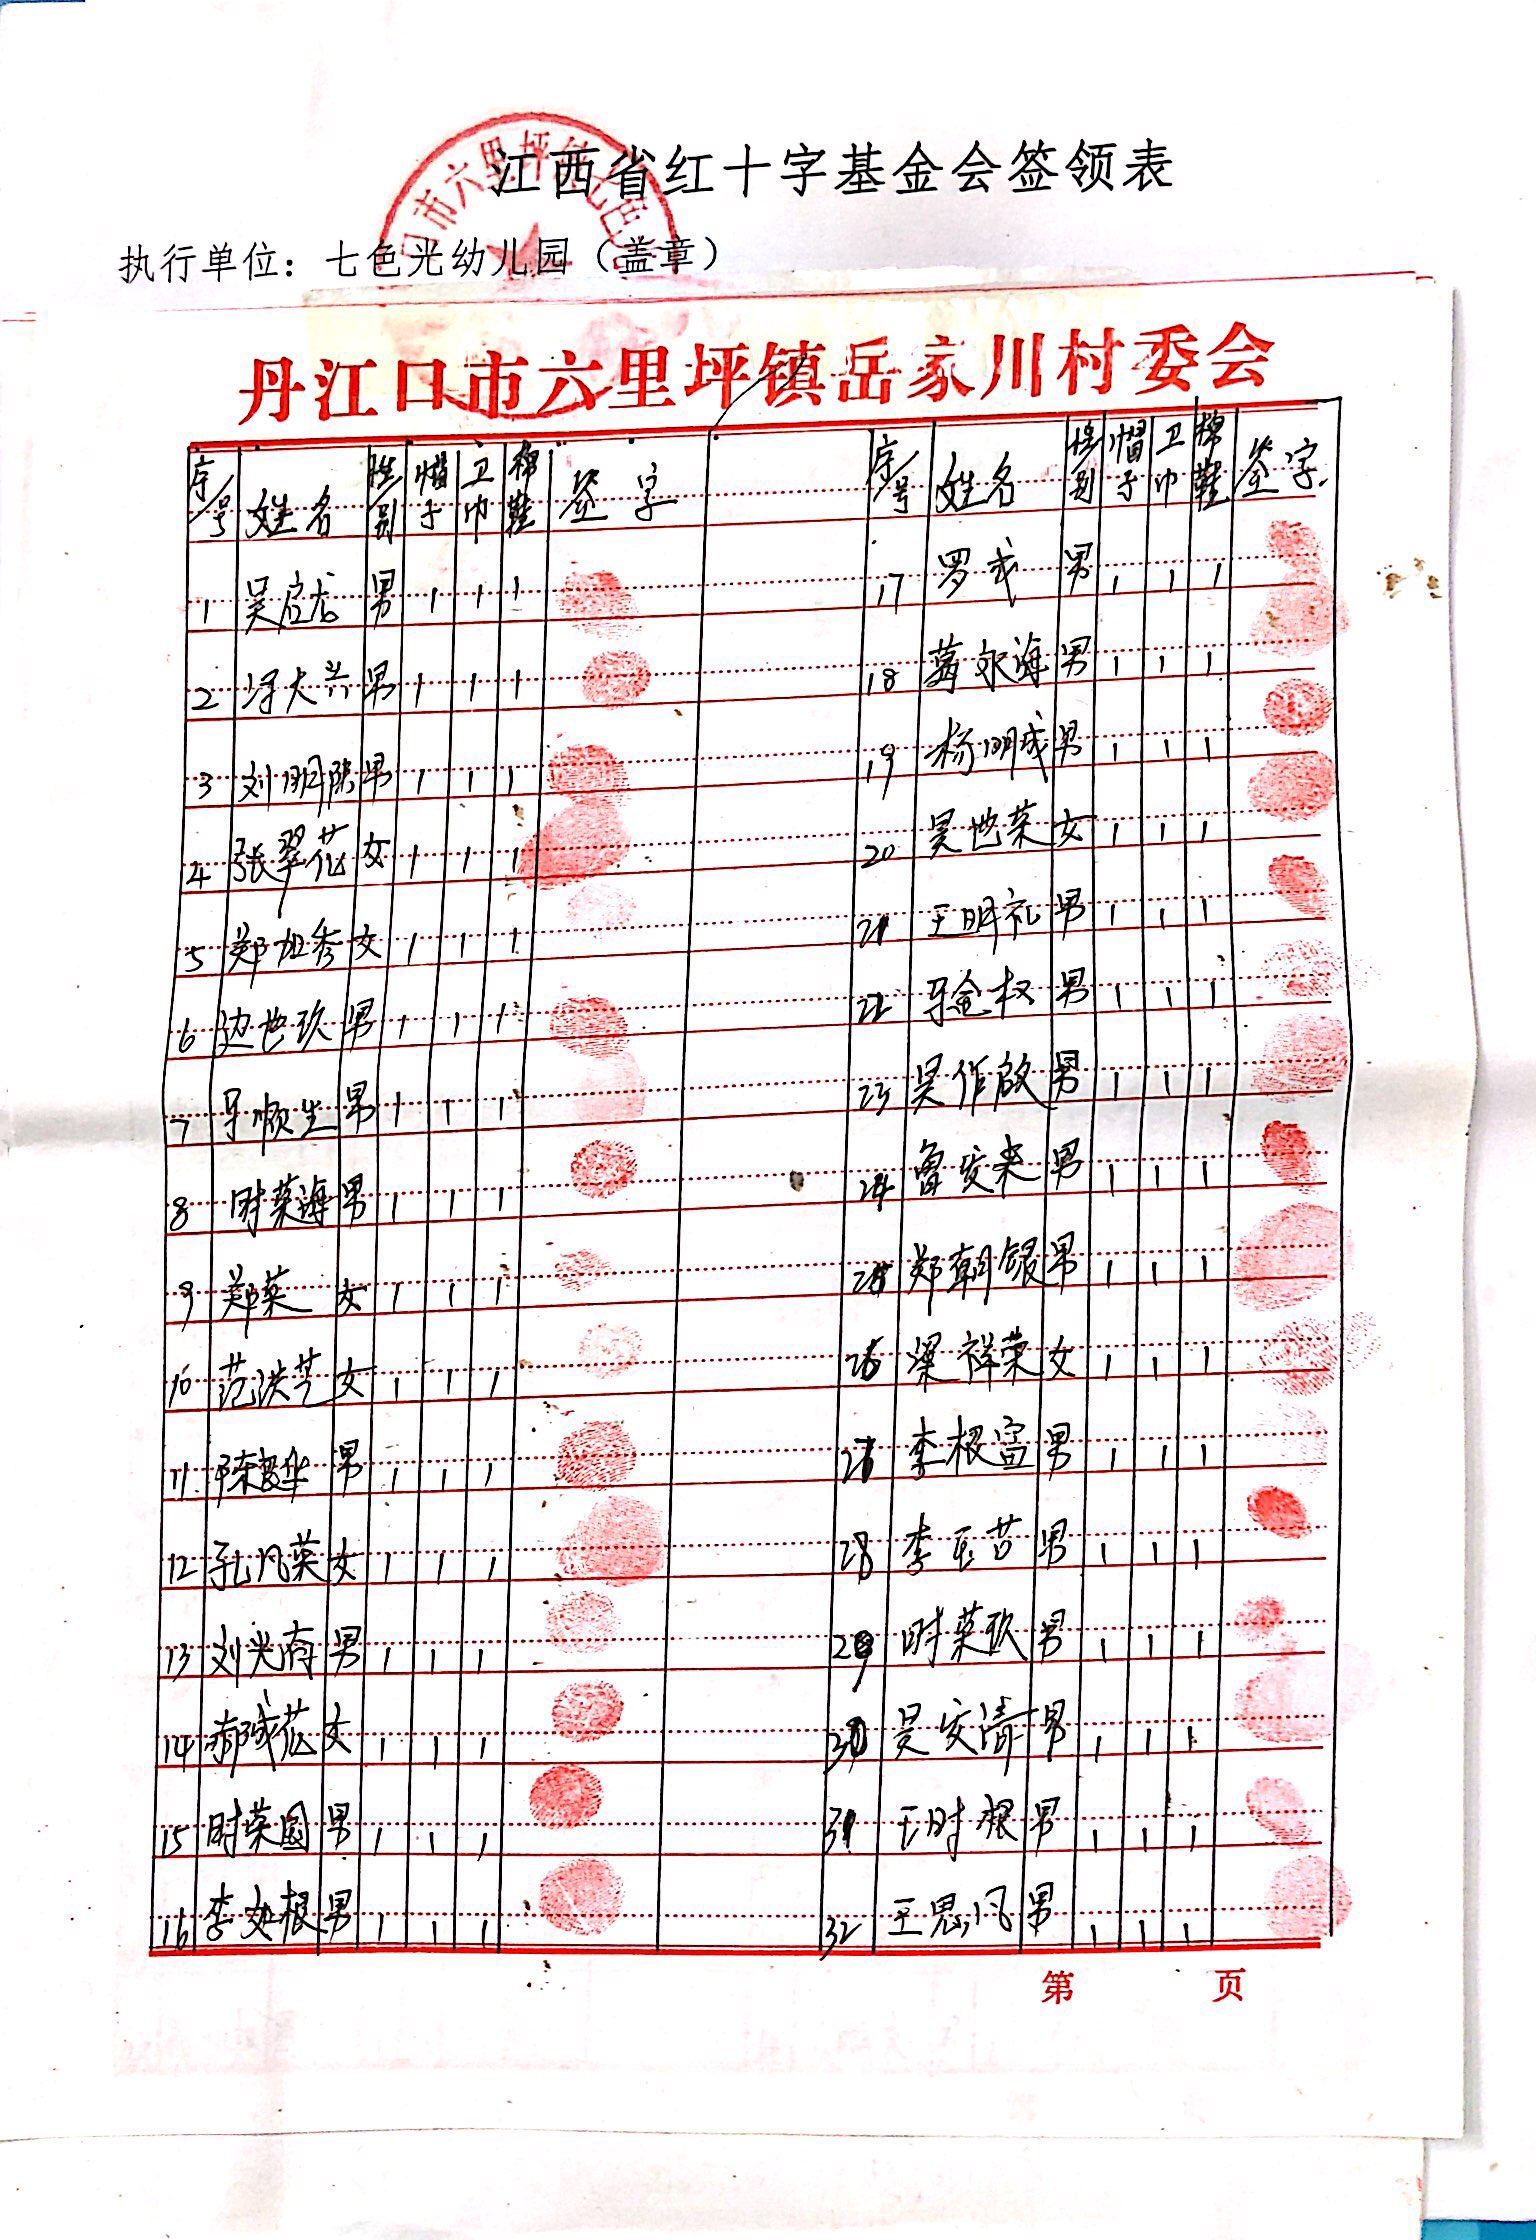 江西省红十字基金会签领表
执行单位：七色光幼儿园（盖章）
丹江口市六里坪镇岳家川村委会
序号 姓名 性别 帽子 卫巾 棉鞋 签字 序号 姓名 性别 帽子 卫巾 棉鞋 签字
1 吴启龙 男 1 1 1 17 罗成 男 1 1 1
2 大兴 男 1 1 1 18 葛永海 男 1 1 1
3 刘明陈 男 1 1 1 19 杨明成 男 1 1 1
4 张翠花 女 1 1 1 20 吴世荣 女 1 1 1
5 郑加秀 女 1 1 1 21 王明礼 男 1 1 1
6 边世玖 男 1 1 1 22 金权 男 1 1 1
7 顺生 男 1 1 1 23 吴作啟 男 1 1 1
8 时荣海 男 1 1 1 24 鲁安来 男 1 1 1
9 郑荣 女 1 1 1 25 郑朝银 男 1 1 1
10 范洪芝 女 1 1 1 26 梁祥荣 女 1 1 1
11 陈华 男 1 1 1 27 李根富 男 1 1 1
12 孔凡英 女 1 1 1 28 李玉苔 男 1 1 1
13 刘光存 男 1 1 1 29 时荣玖 男 1 1 1
14 郝成花 女 1 1 1 30 吴安清 男 1 1 1
15 时荣国 男 1 1 1 31 王时根 男 1 1 1
16 李如根 男 1 1 1 32 王思凡 男 1 1 1
第 页